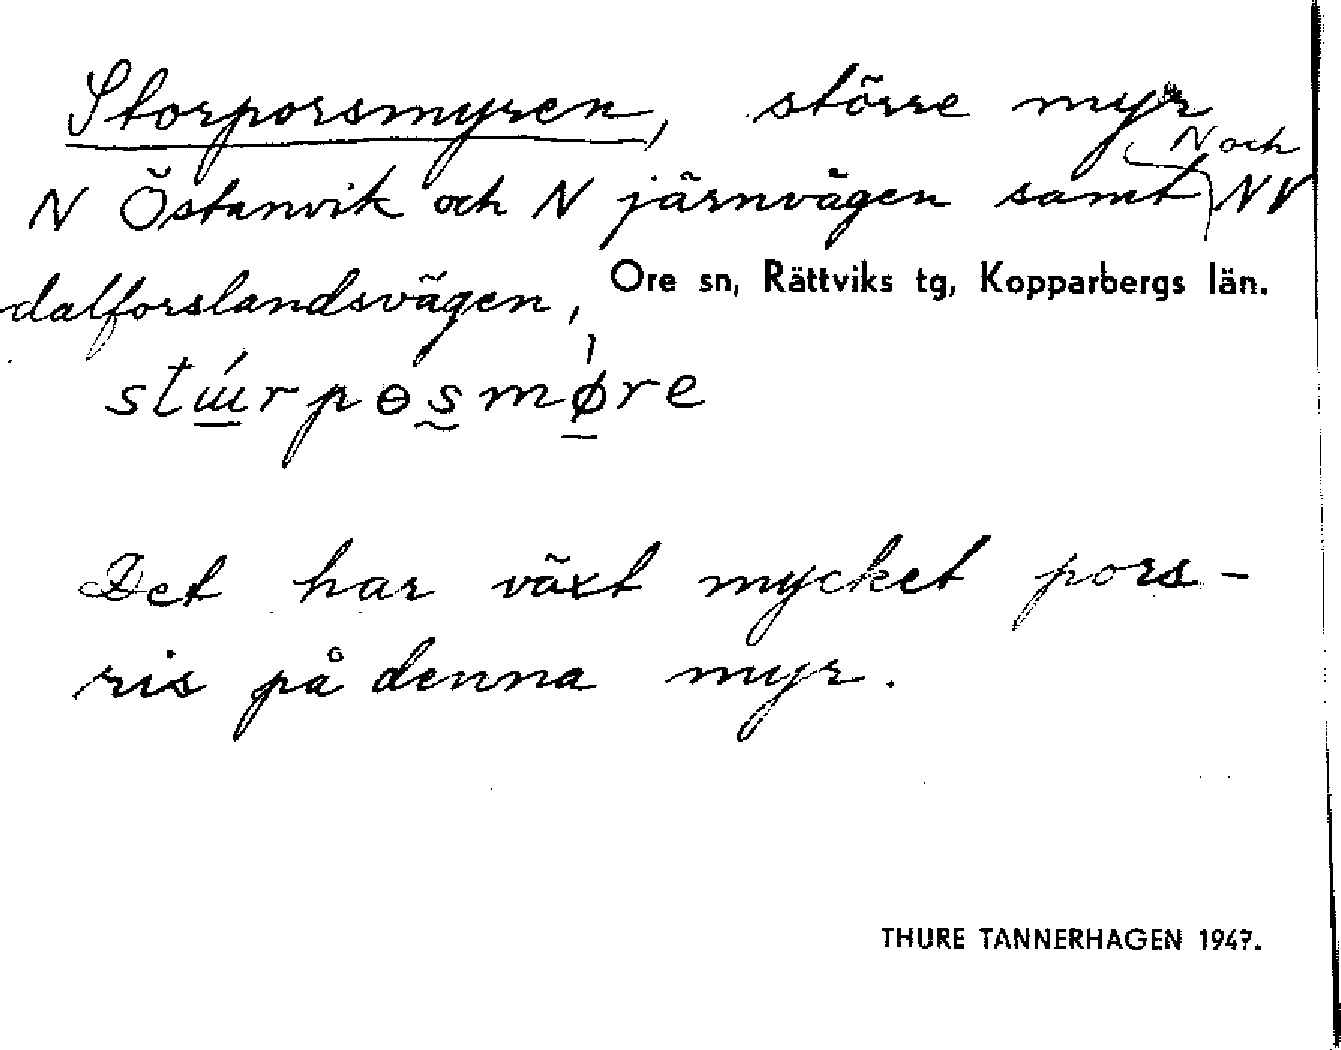 Storporsmyren, större myr
N Östanvik och N järnvägen samt N och NV
dalforslandsvägen,
Ore sn, Rättviks tg, Kopparbergs län.
stɯ́rpɵsmøre
Det har växt mycket pors-
ris på denna myr.
THURE TANNERHAGEN 1947.